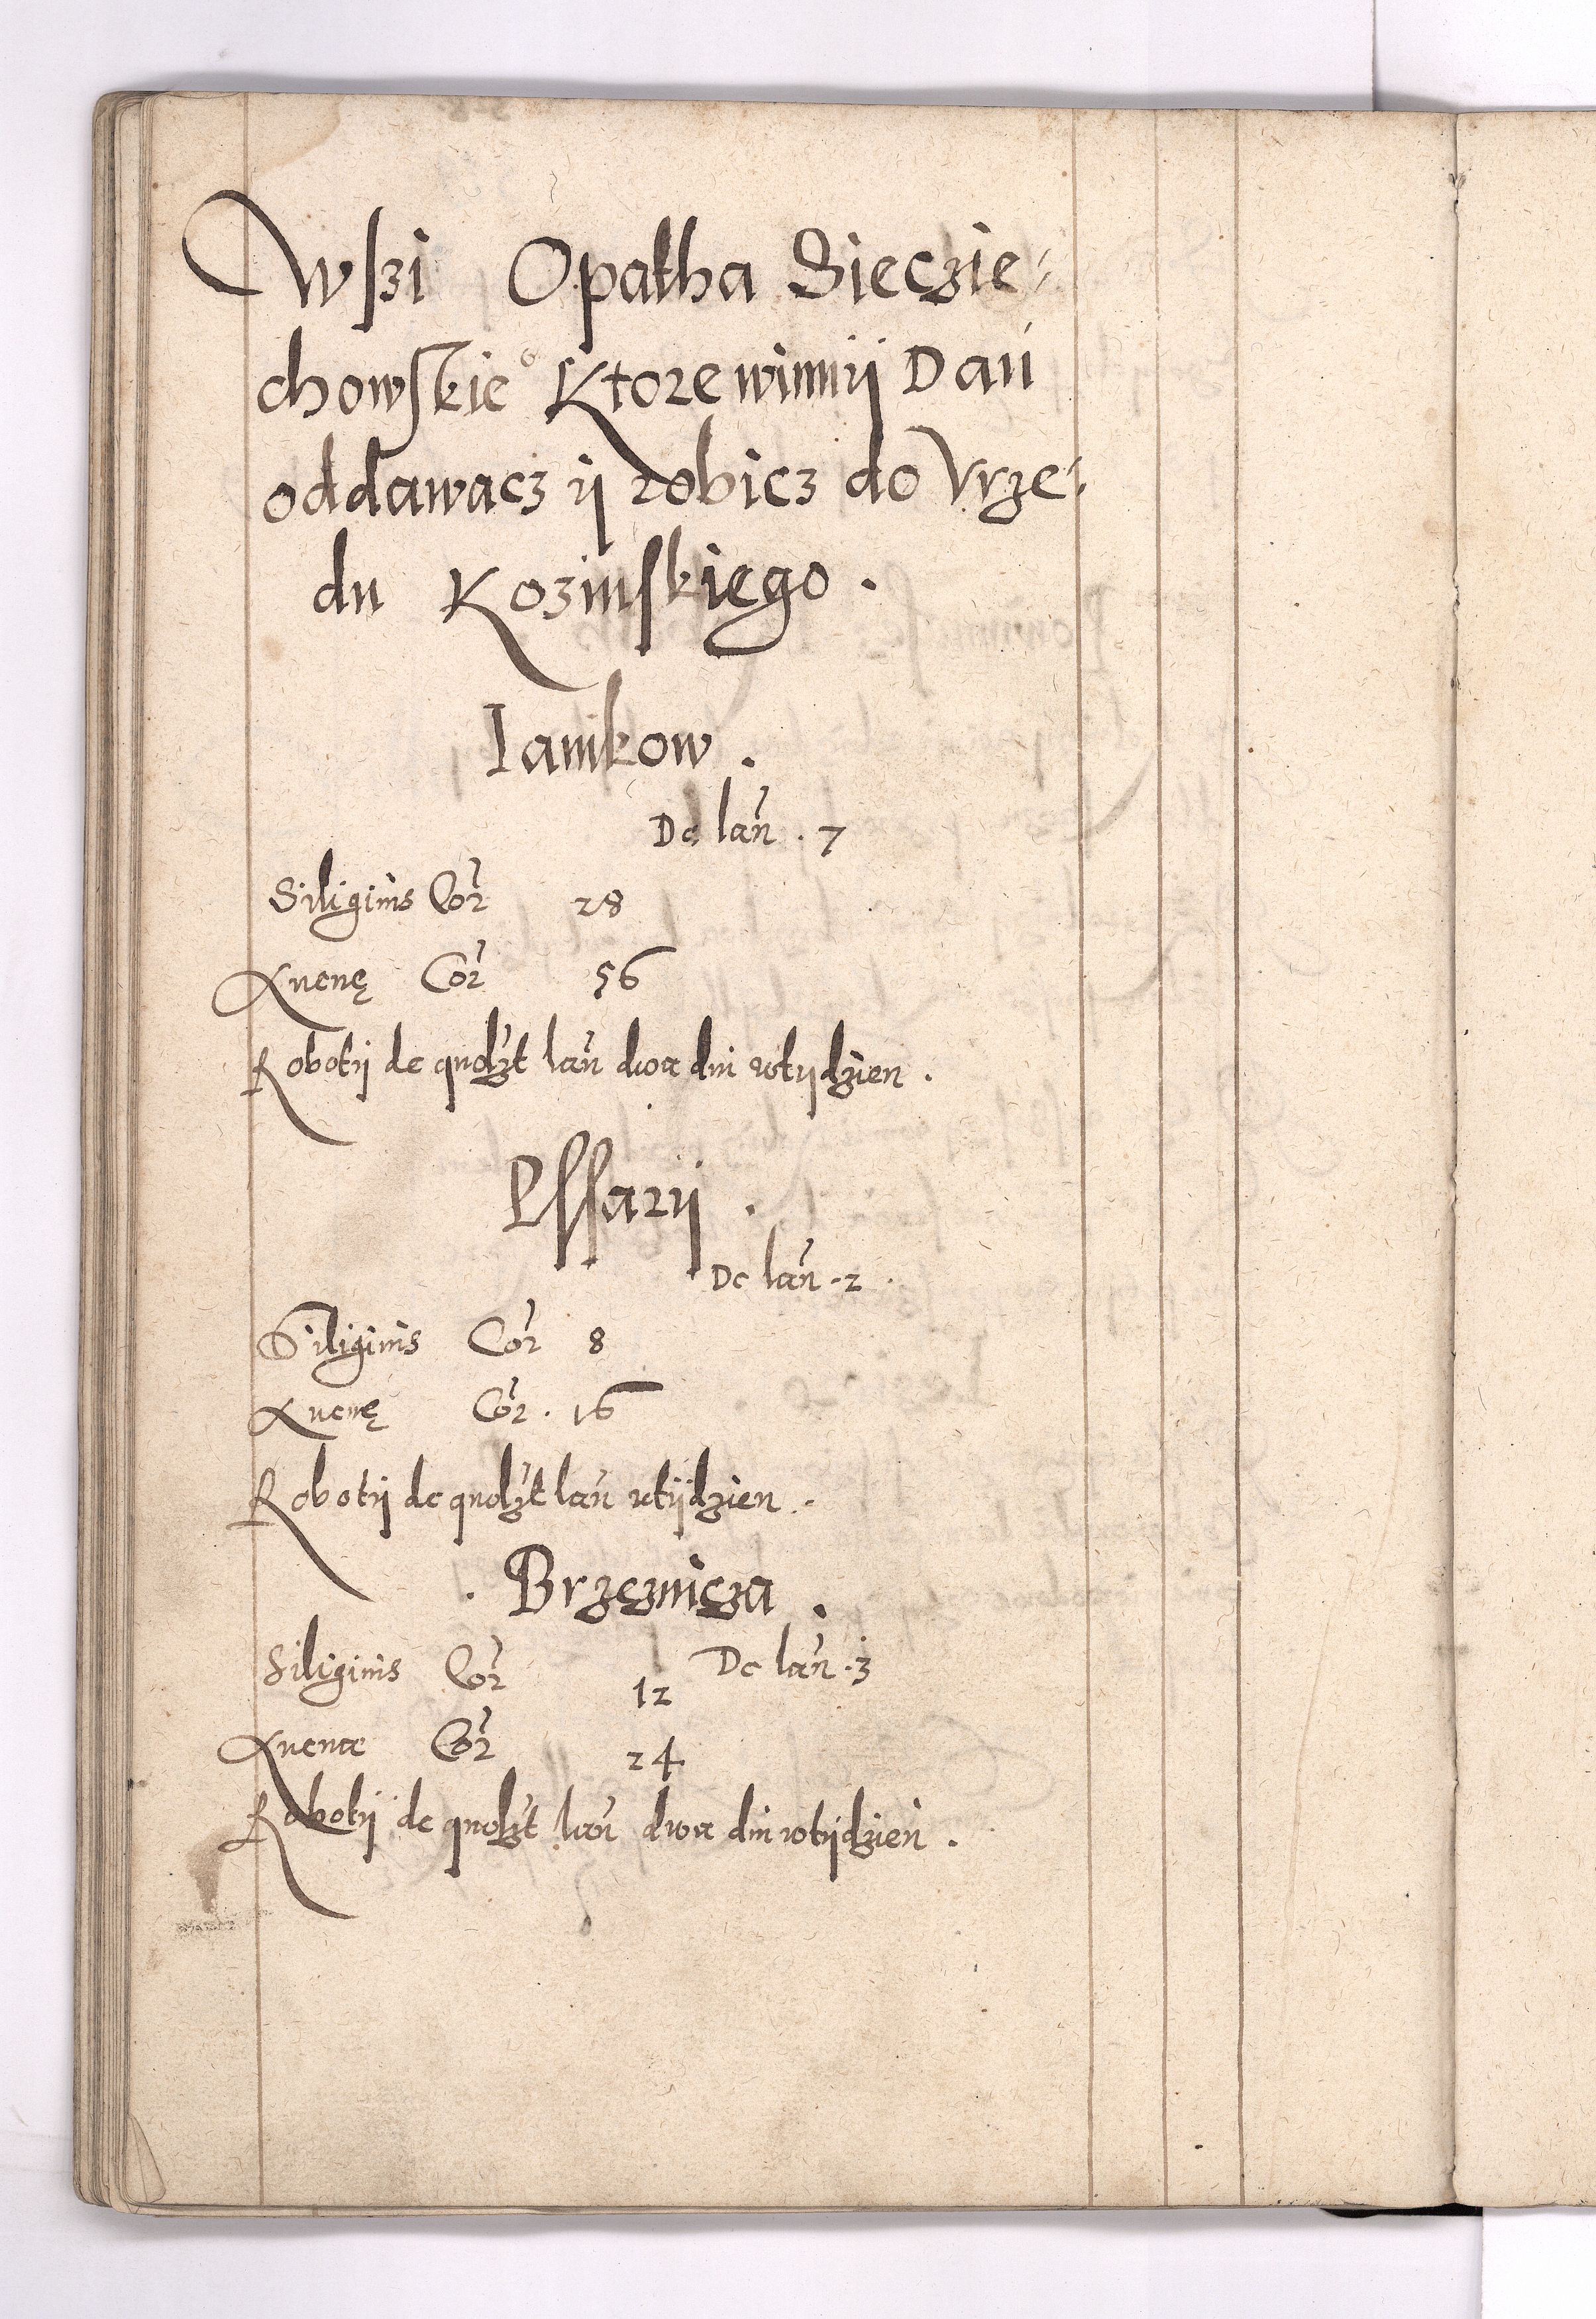 Wszi Opatha Sieczie-
chowskieº Ktore winnij Dań
oddawacz ij robicz do Vrze-
du Kozinskiego .
Ianikow .
De lan̄ . 7
Siliginis Cor 28
Auenę Cor 56
Robotij de quolzt lan̄ dwa dni wtijdzien .
Pssarij .
De lan̄ . 2 .
Siliginis Cor 8
Auenę Cor . 16
Robotij de quolzt lan̄ wtijdzien .
. Brzeznicza .
De lan̄ . 3
Siliginis Cor 12
Auenae Cor 24
Robotij de quolzt lan̄ dwa dni wtijdzień .